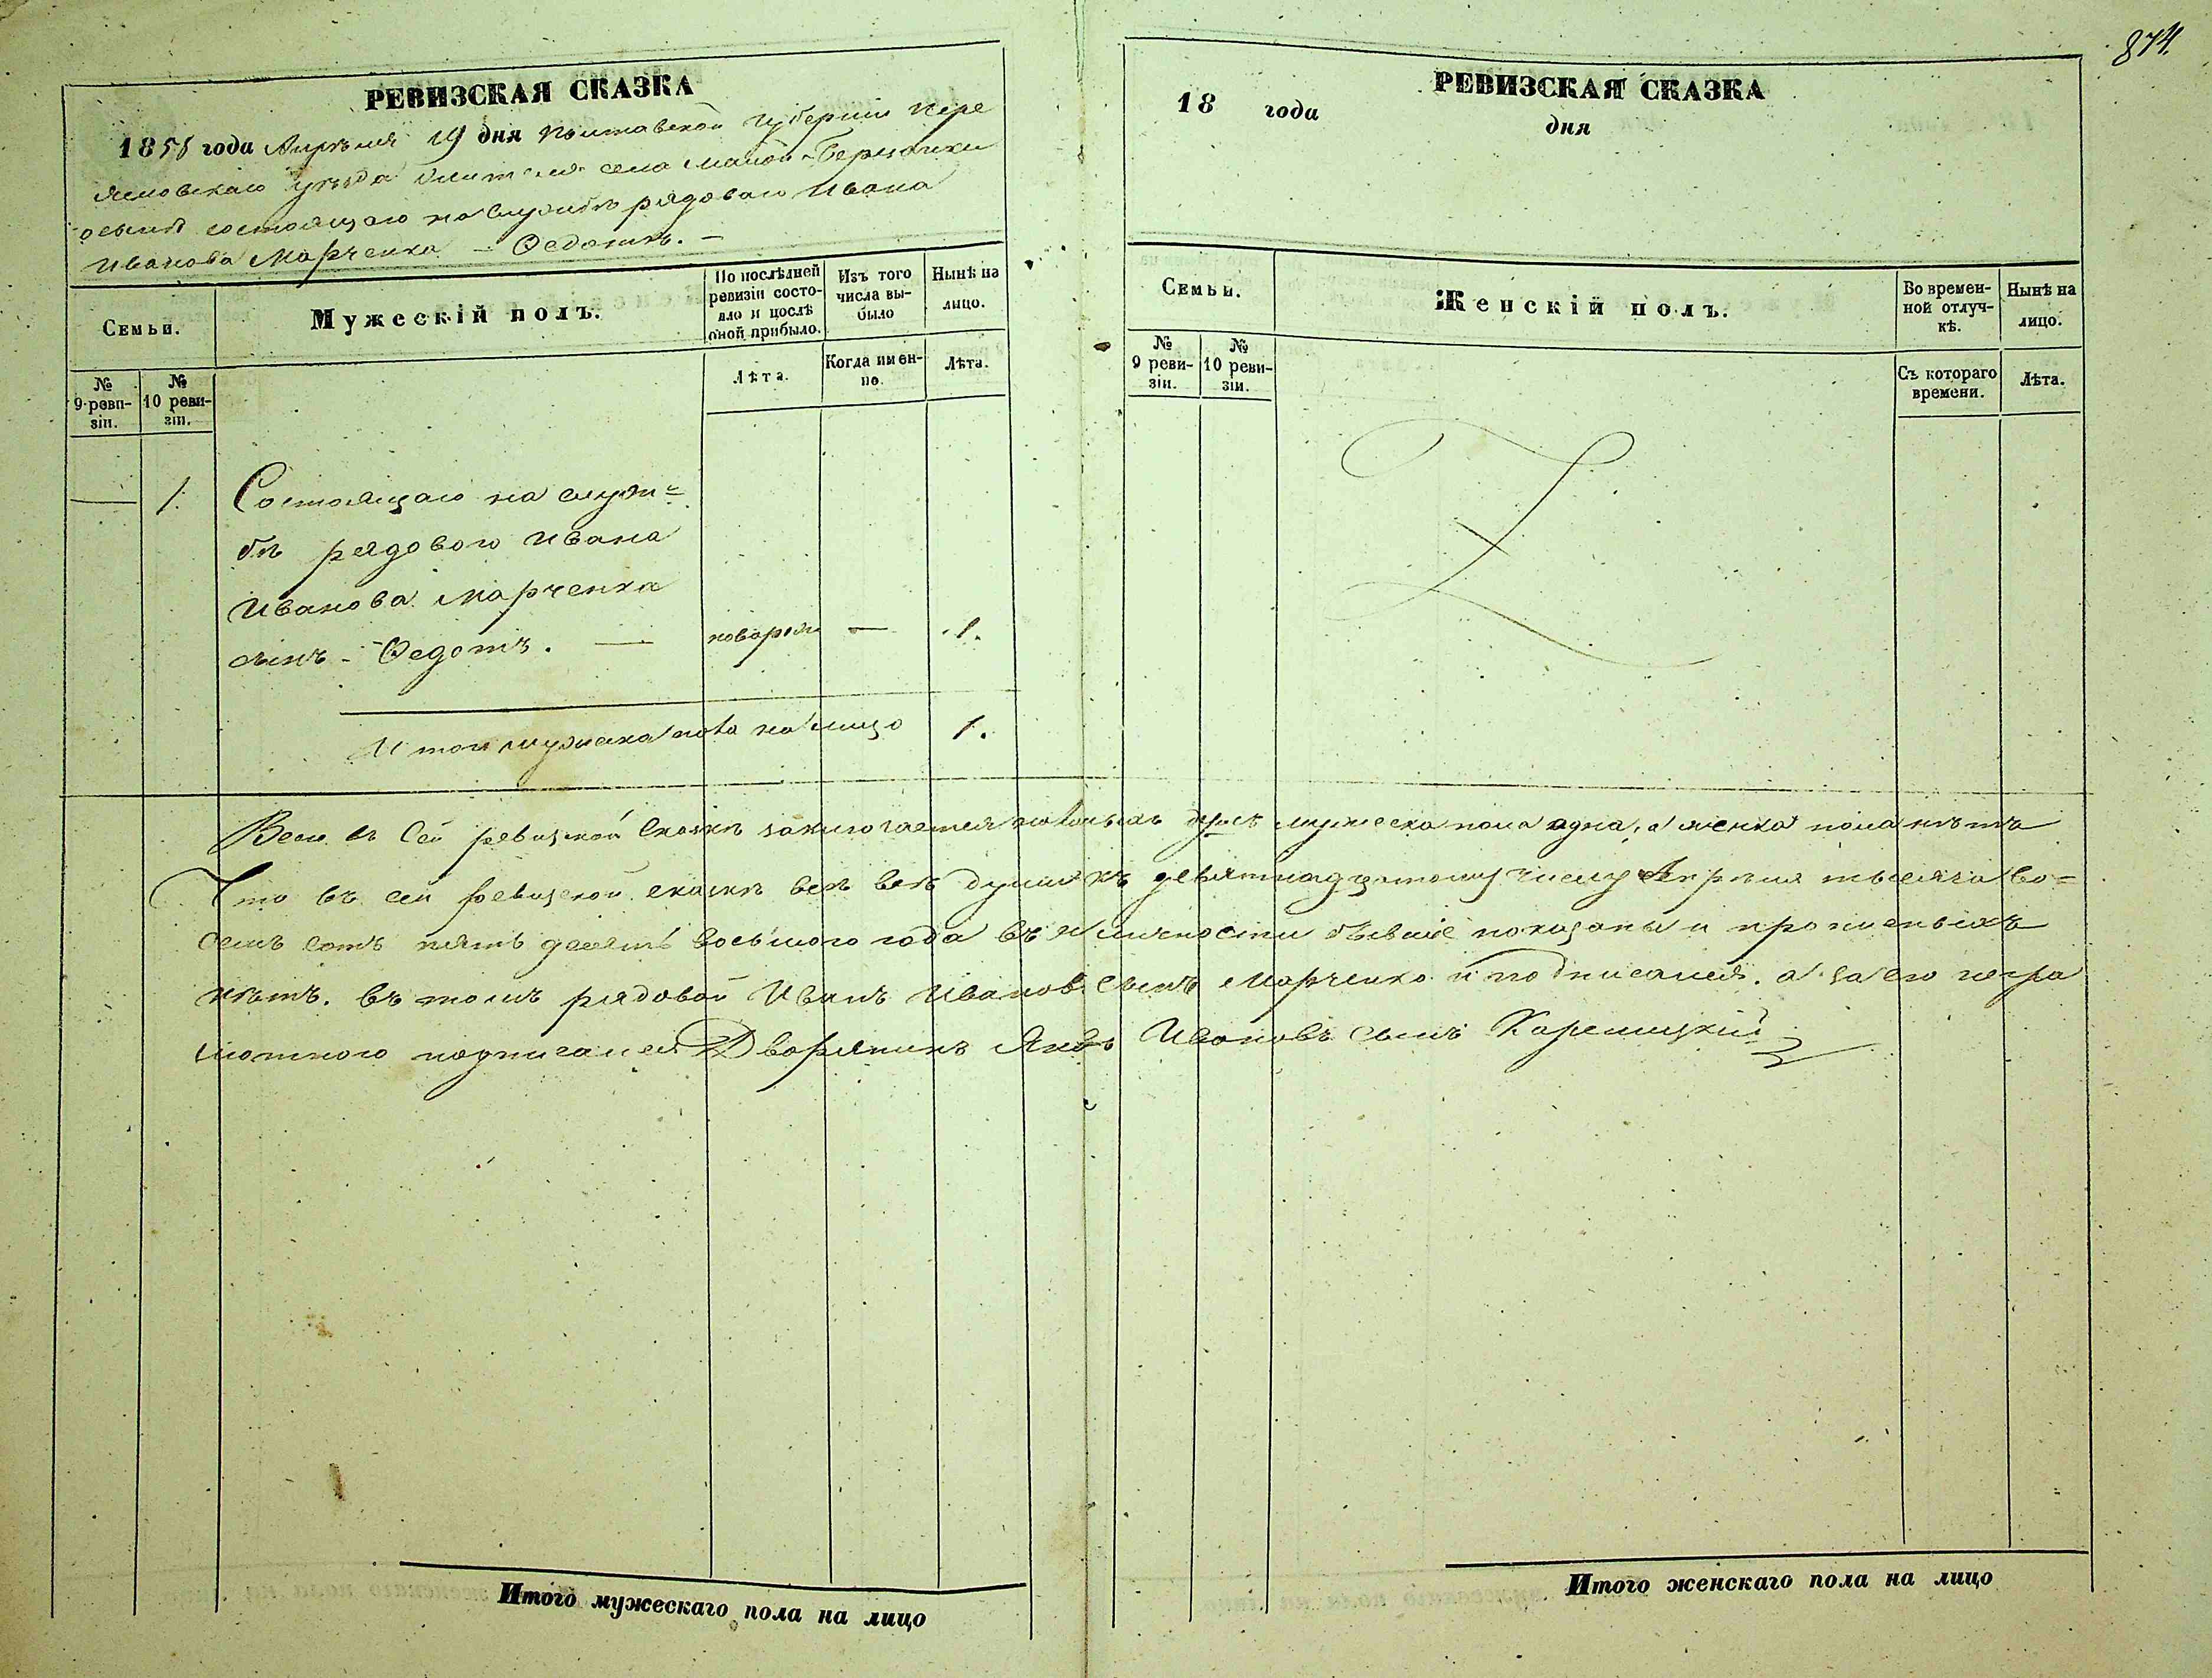 874.
РЕВИЗСКАЯ СКАЗКА
1858 года Апрѣля 19 дня Полтавской Губерніи Пере
яславскаго уѣзда жителя села Малой-
о сынѣ состоящаго на службѣ рядоваго Ивана
Иванова Марченка – Федотѣ. –
Семьи.
Мужескій полъ.
По послѣдней ревизіи состояло и послѣ оной прибыло.
Изъ того числа выбыло
Нынѣ на лицо.
№ 9 ревизіи.
№ 10 ревизіи.
Лѣта.
Когда именно.
Лѣта.
— 1. Состоящаго на служ=
бѣ рядового Ивана
Иванова Марченка
сынъ - Федотъ. — новорож — 1.
Итого мужеска пола на лицо 1.
РЕВИЗСКАЯ СКАЗКА
18 года дня
Семьи.
Женскій полъ.
Во временной отлучкѣ.
Нынѣ на лицо.
№ 9 ревизіи.
№ 10 ревизіи.
Съ котораго времени.
Лѣта.
Всего въ сей ревизской сказкѣ заключается наличныхъ душъ мужеска пола одна, а женска пола нѣтъ
Что въ сей ревизской сказкѣ всѣ душы къ девятнадцатому числу Апрѣля тысяча во=
семъ сотъ пять десятъ восьмого года въ наличности бывшіе показаны и прописныхъ
нѣтъ. въ томъ рядовой Иванъ Ивановъ сынъ Марченко и подписался. а за его негра
мотного подписался Дворянинъ Яковъ Ивановъ сынъ
Итого мужескаго пола на лицо
Итого женскаго пола на лицо